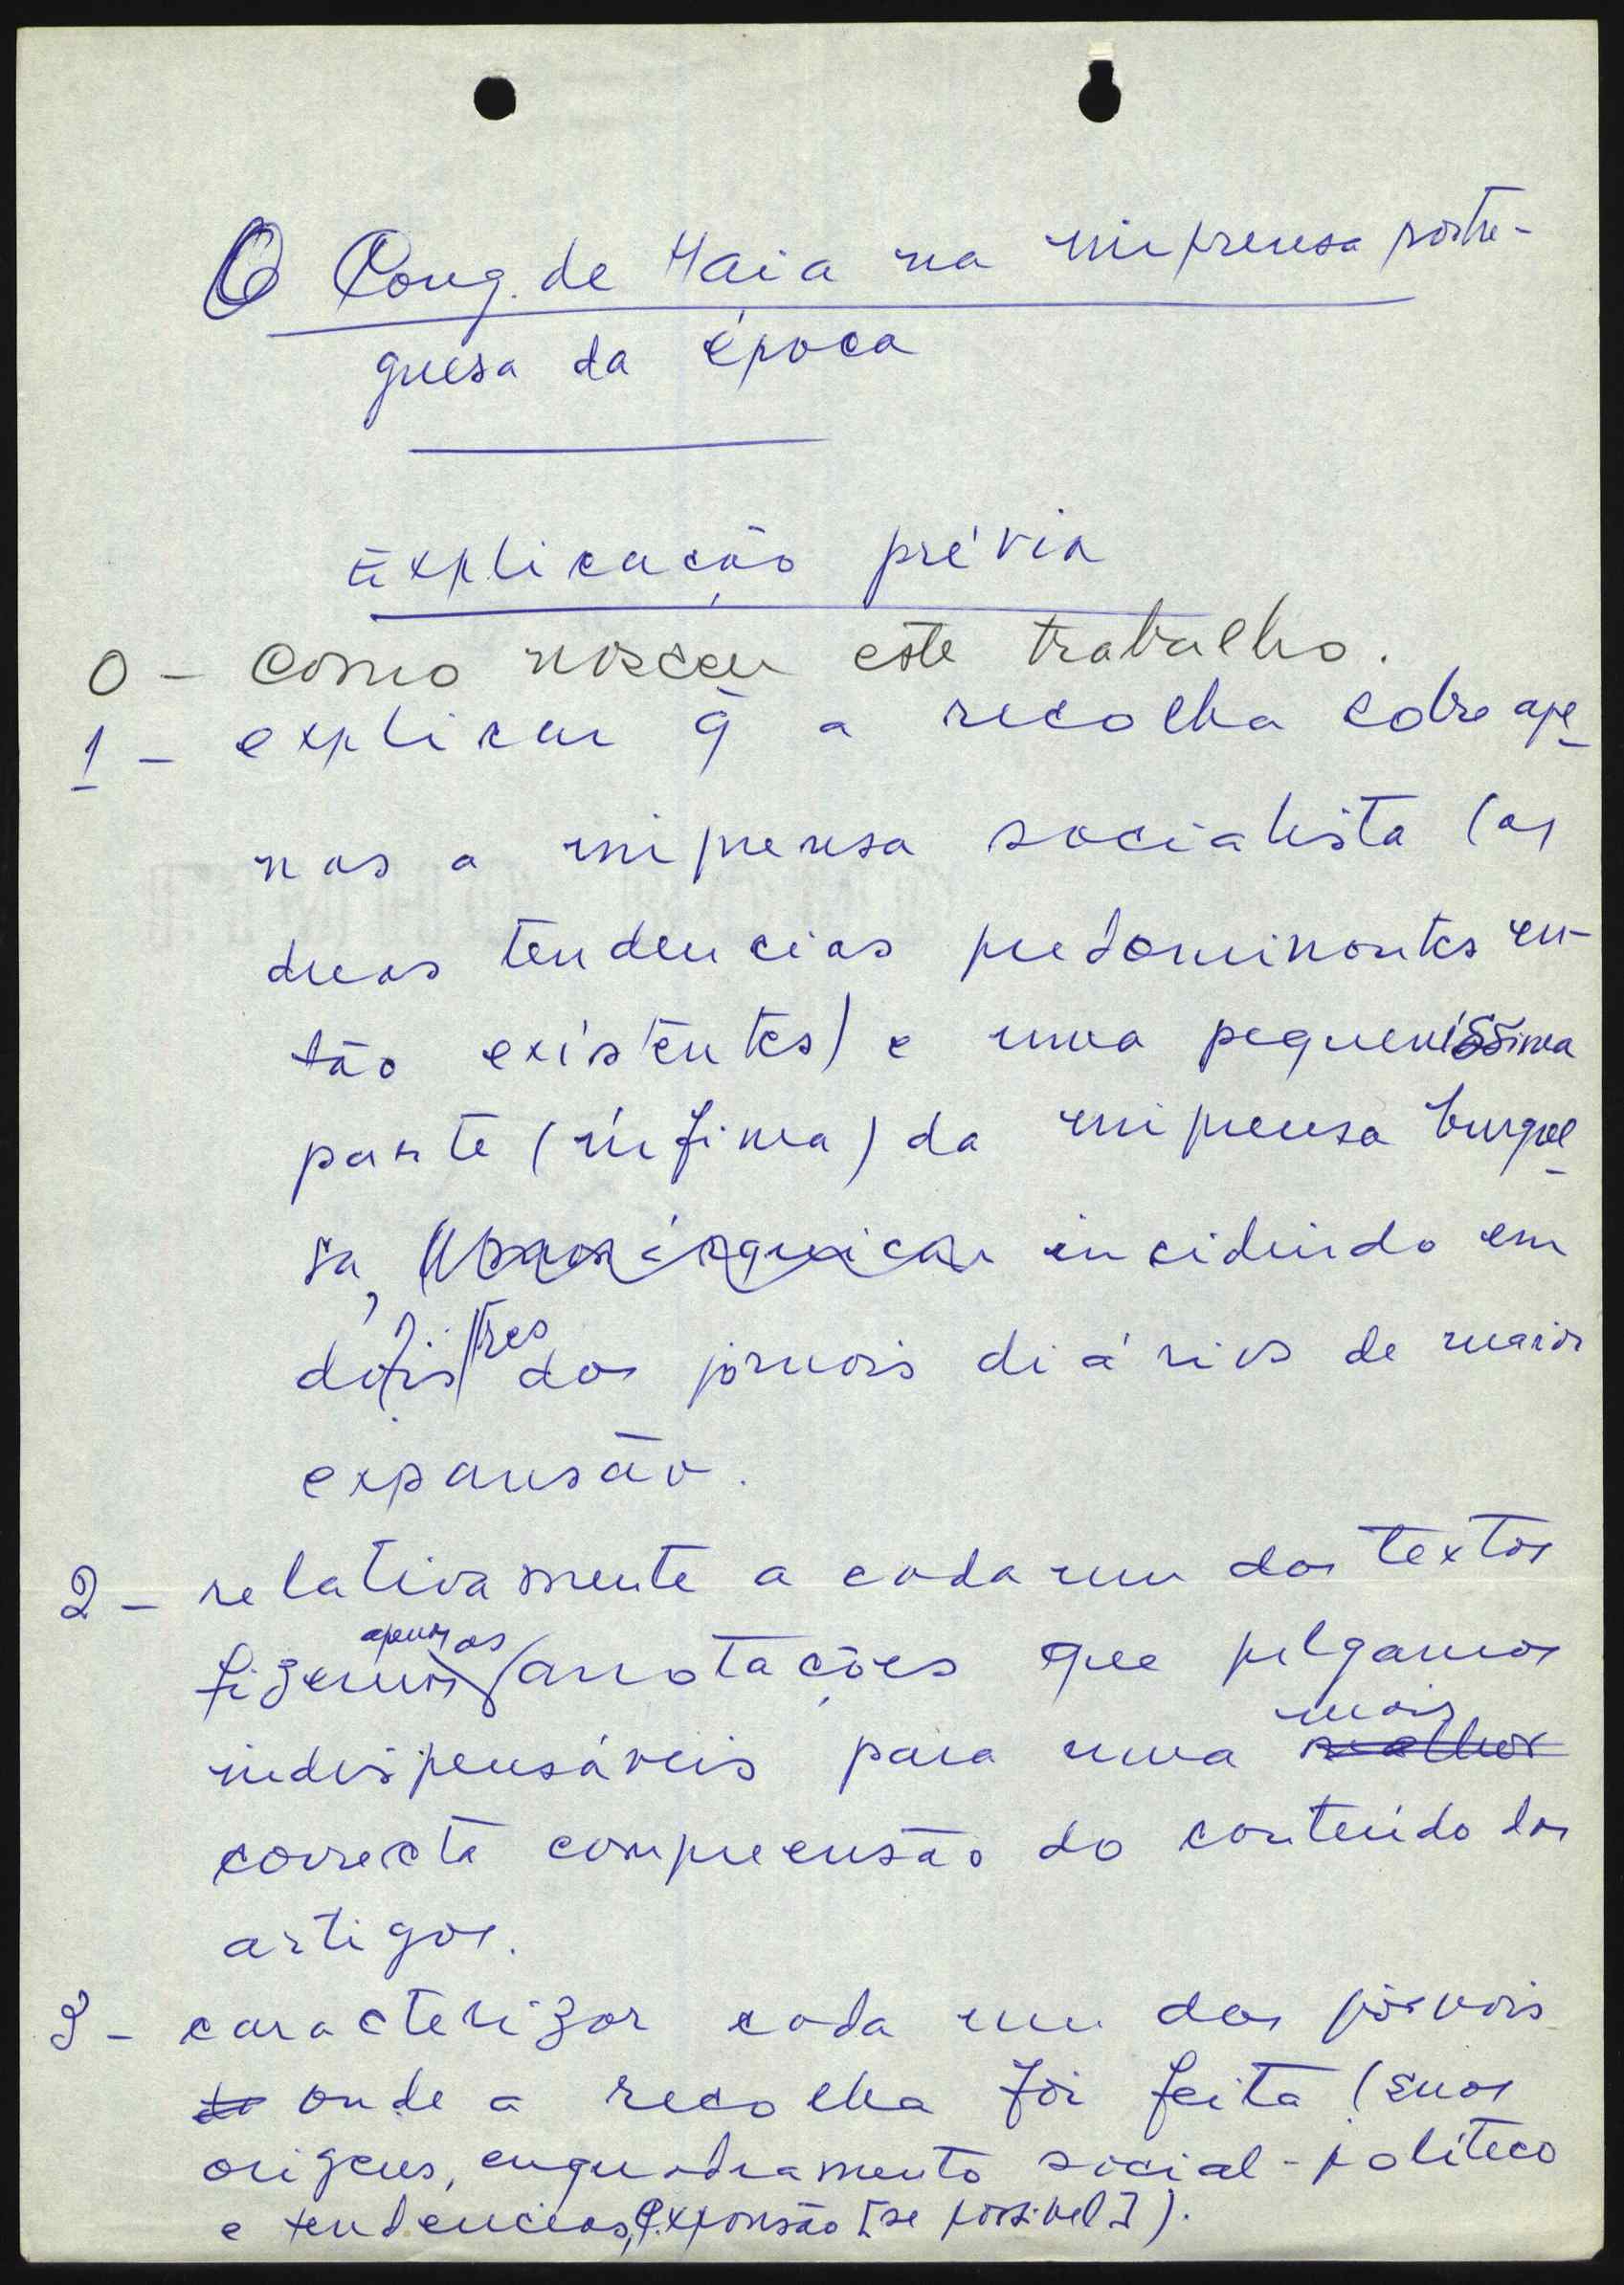 O Cong. de Haia na imprensa portu-
guesa da época
Explicação prévia
0 - Como nasceu este trabalho.
1 - explicar q̃ a recolha cobre ape
nas a imprensa socialista (as
duas tendencias predominantes en-
tão existentes) e uma pequeníssima
parte (ínfima) da imprensa burgue
sa, (monárquica incidindo em
dois tres dos jornais diários de maior
expansão.
2 - relativamente a cada um dos textos
apenas as
fizemos anotações que julgamos
mais
indispensáveis para uma melhor
correcta compreensão do conteúdo dos
artigos.
3 - caracterizar cada um dos jornais
onde a recolha foi feita (suas
origens, enquadramento social-político
e tendencias, expansão [se possivel]).